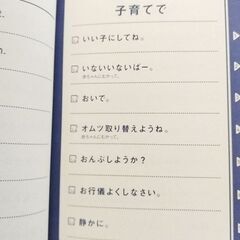 子育てで
いい子にしてね。
いないいないばー。
赤ちゃんにむかって。
おいで。
オムツ取り替えようね。
赤ちゃんにむかって。
おんぶしようか？
お行儀よくしなさい。
静かに。